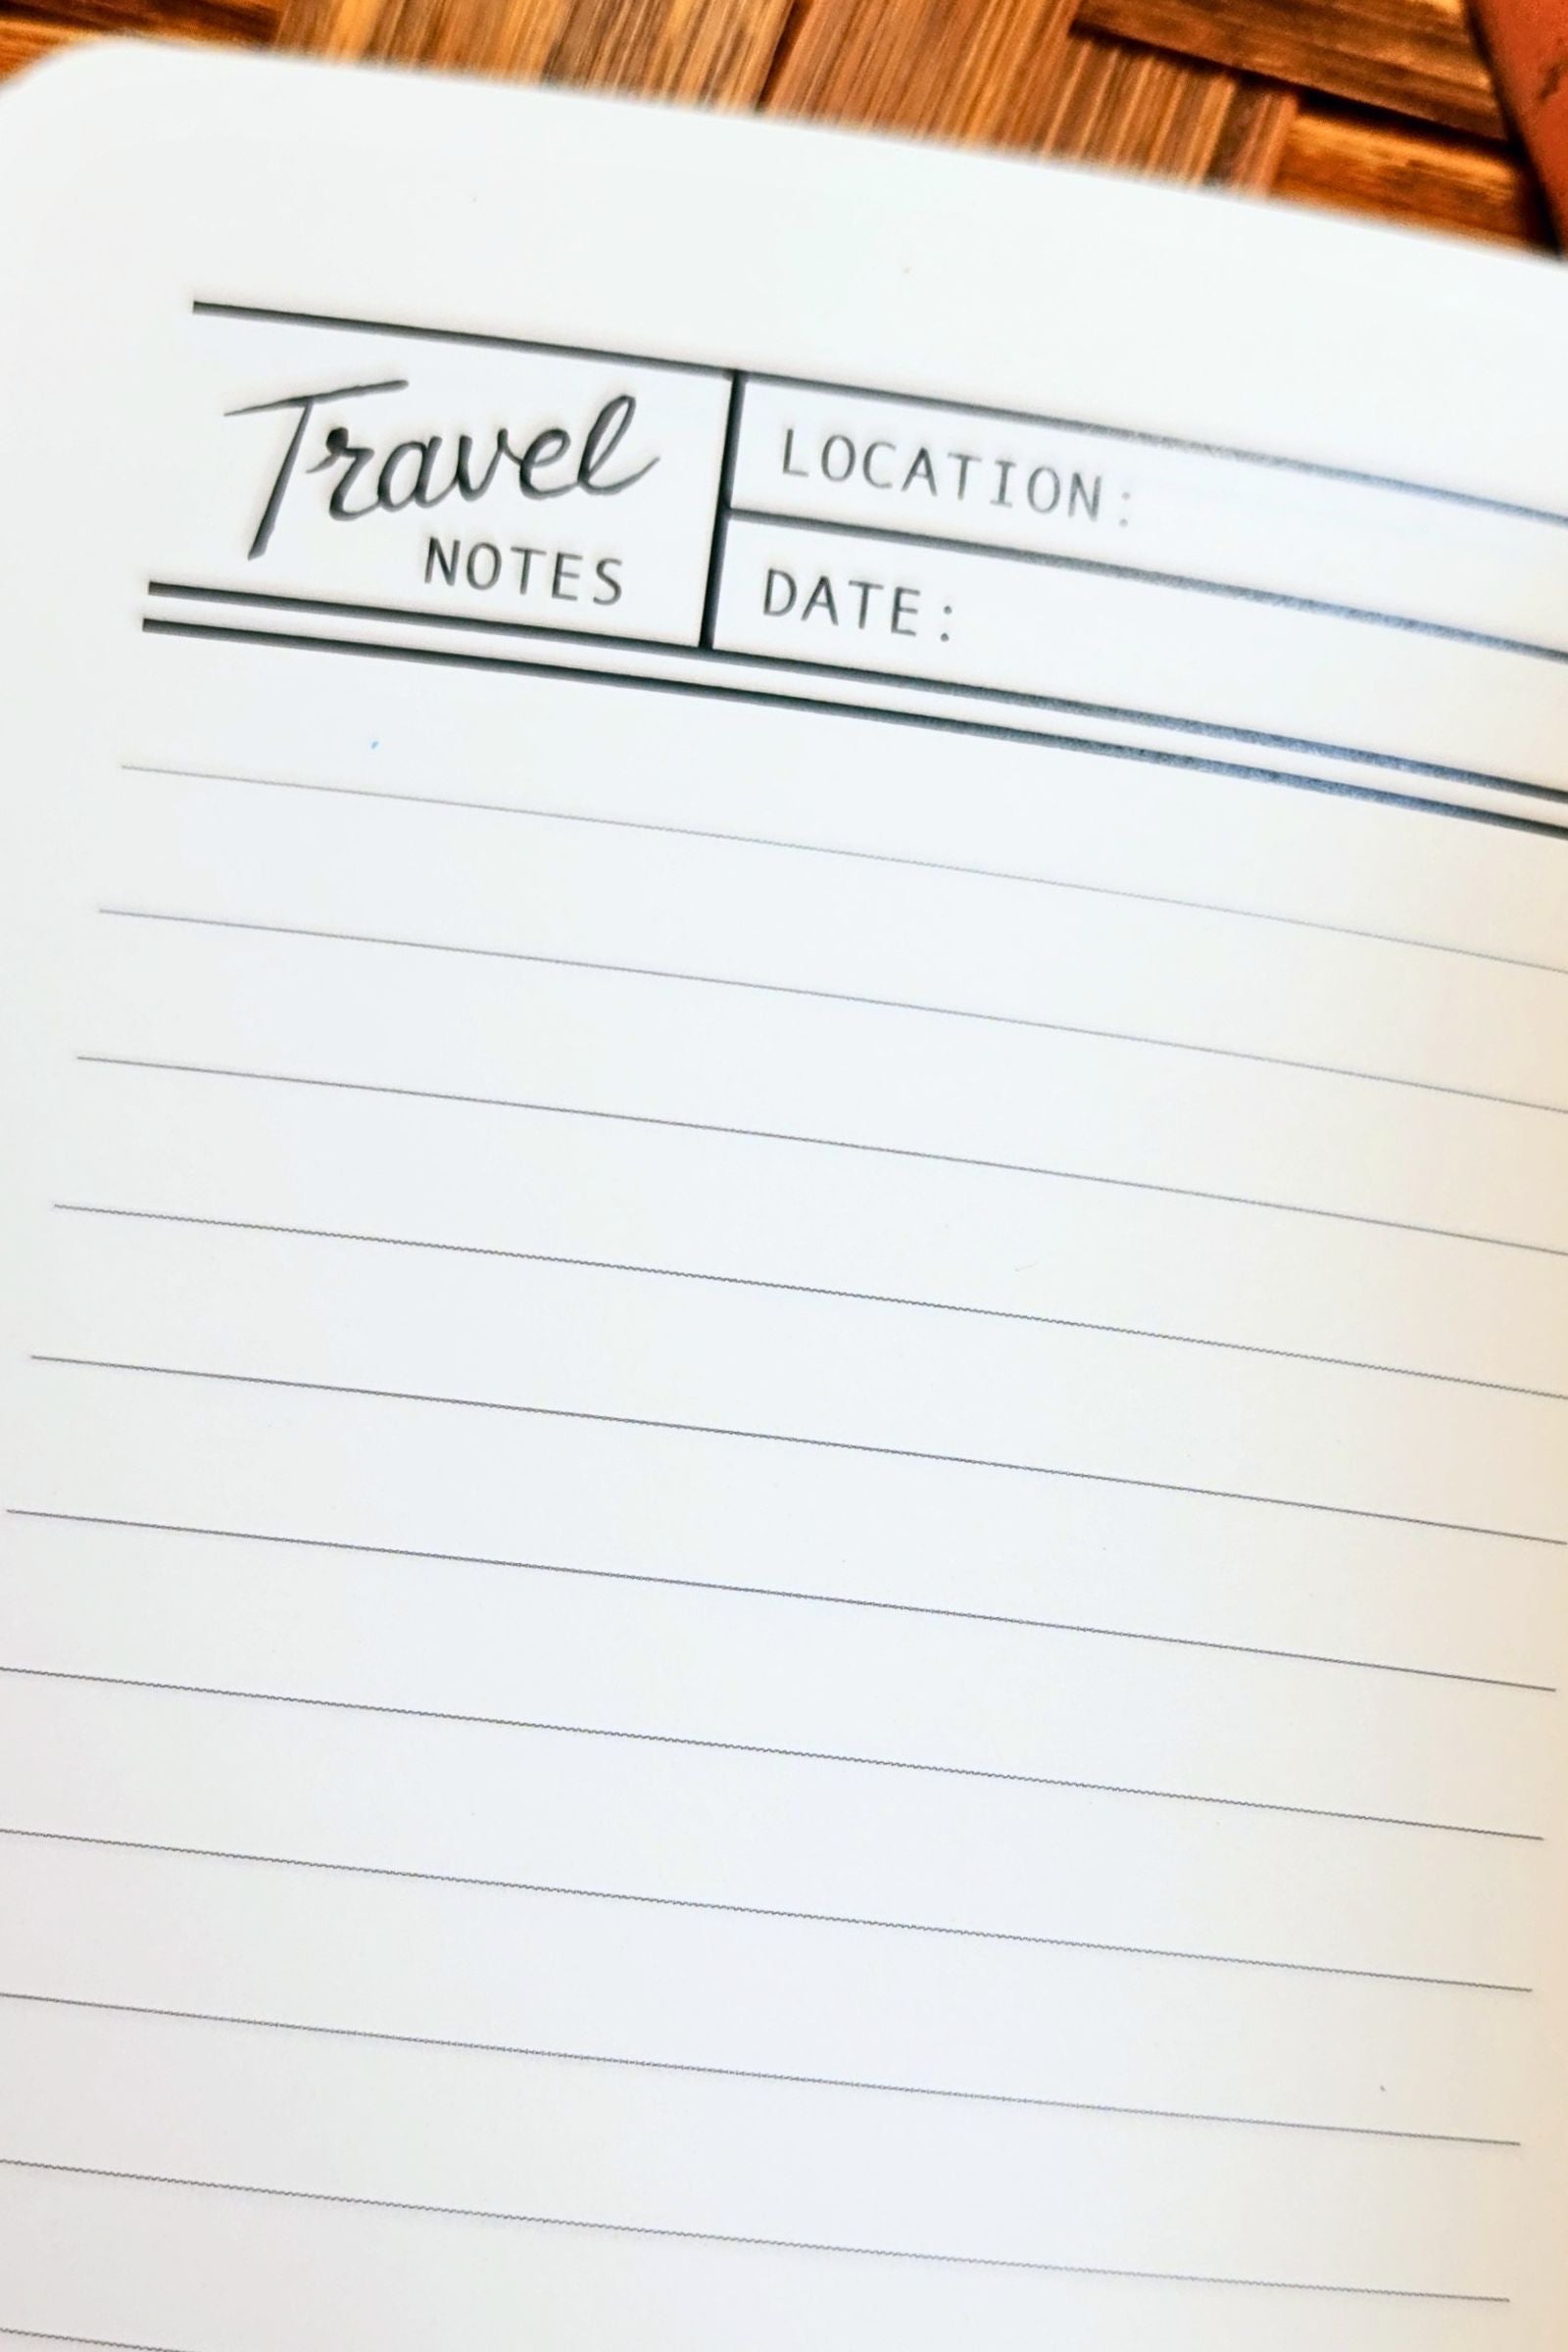 Travel
NOTES
LOCATION:
DATE: